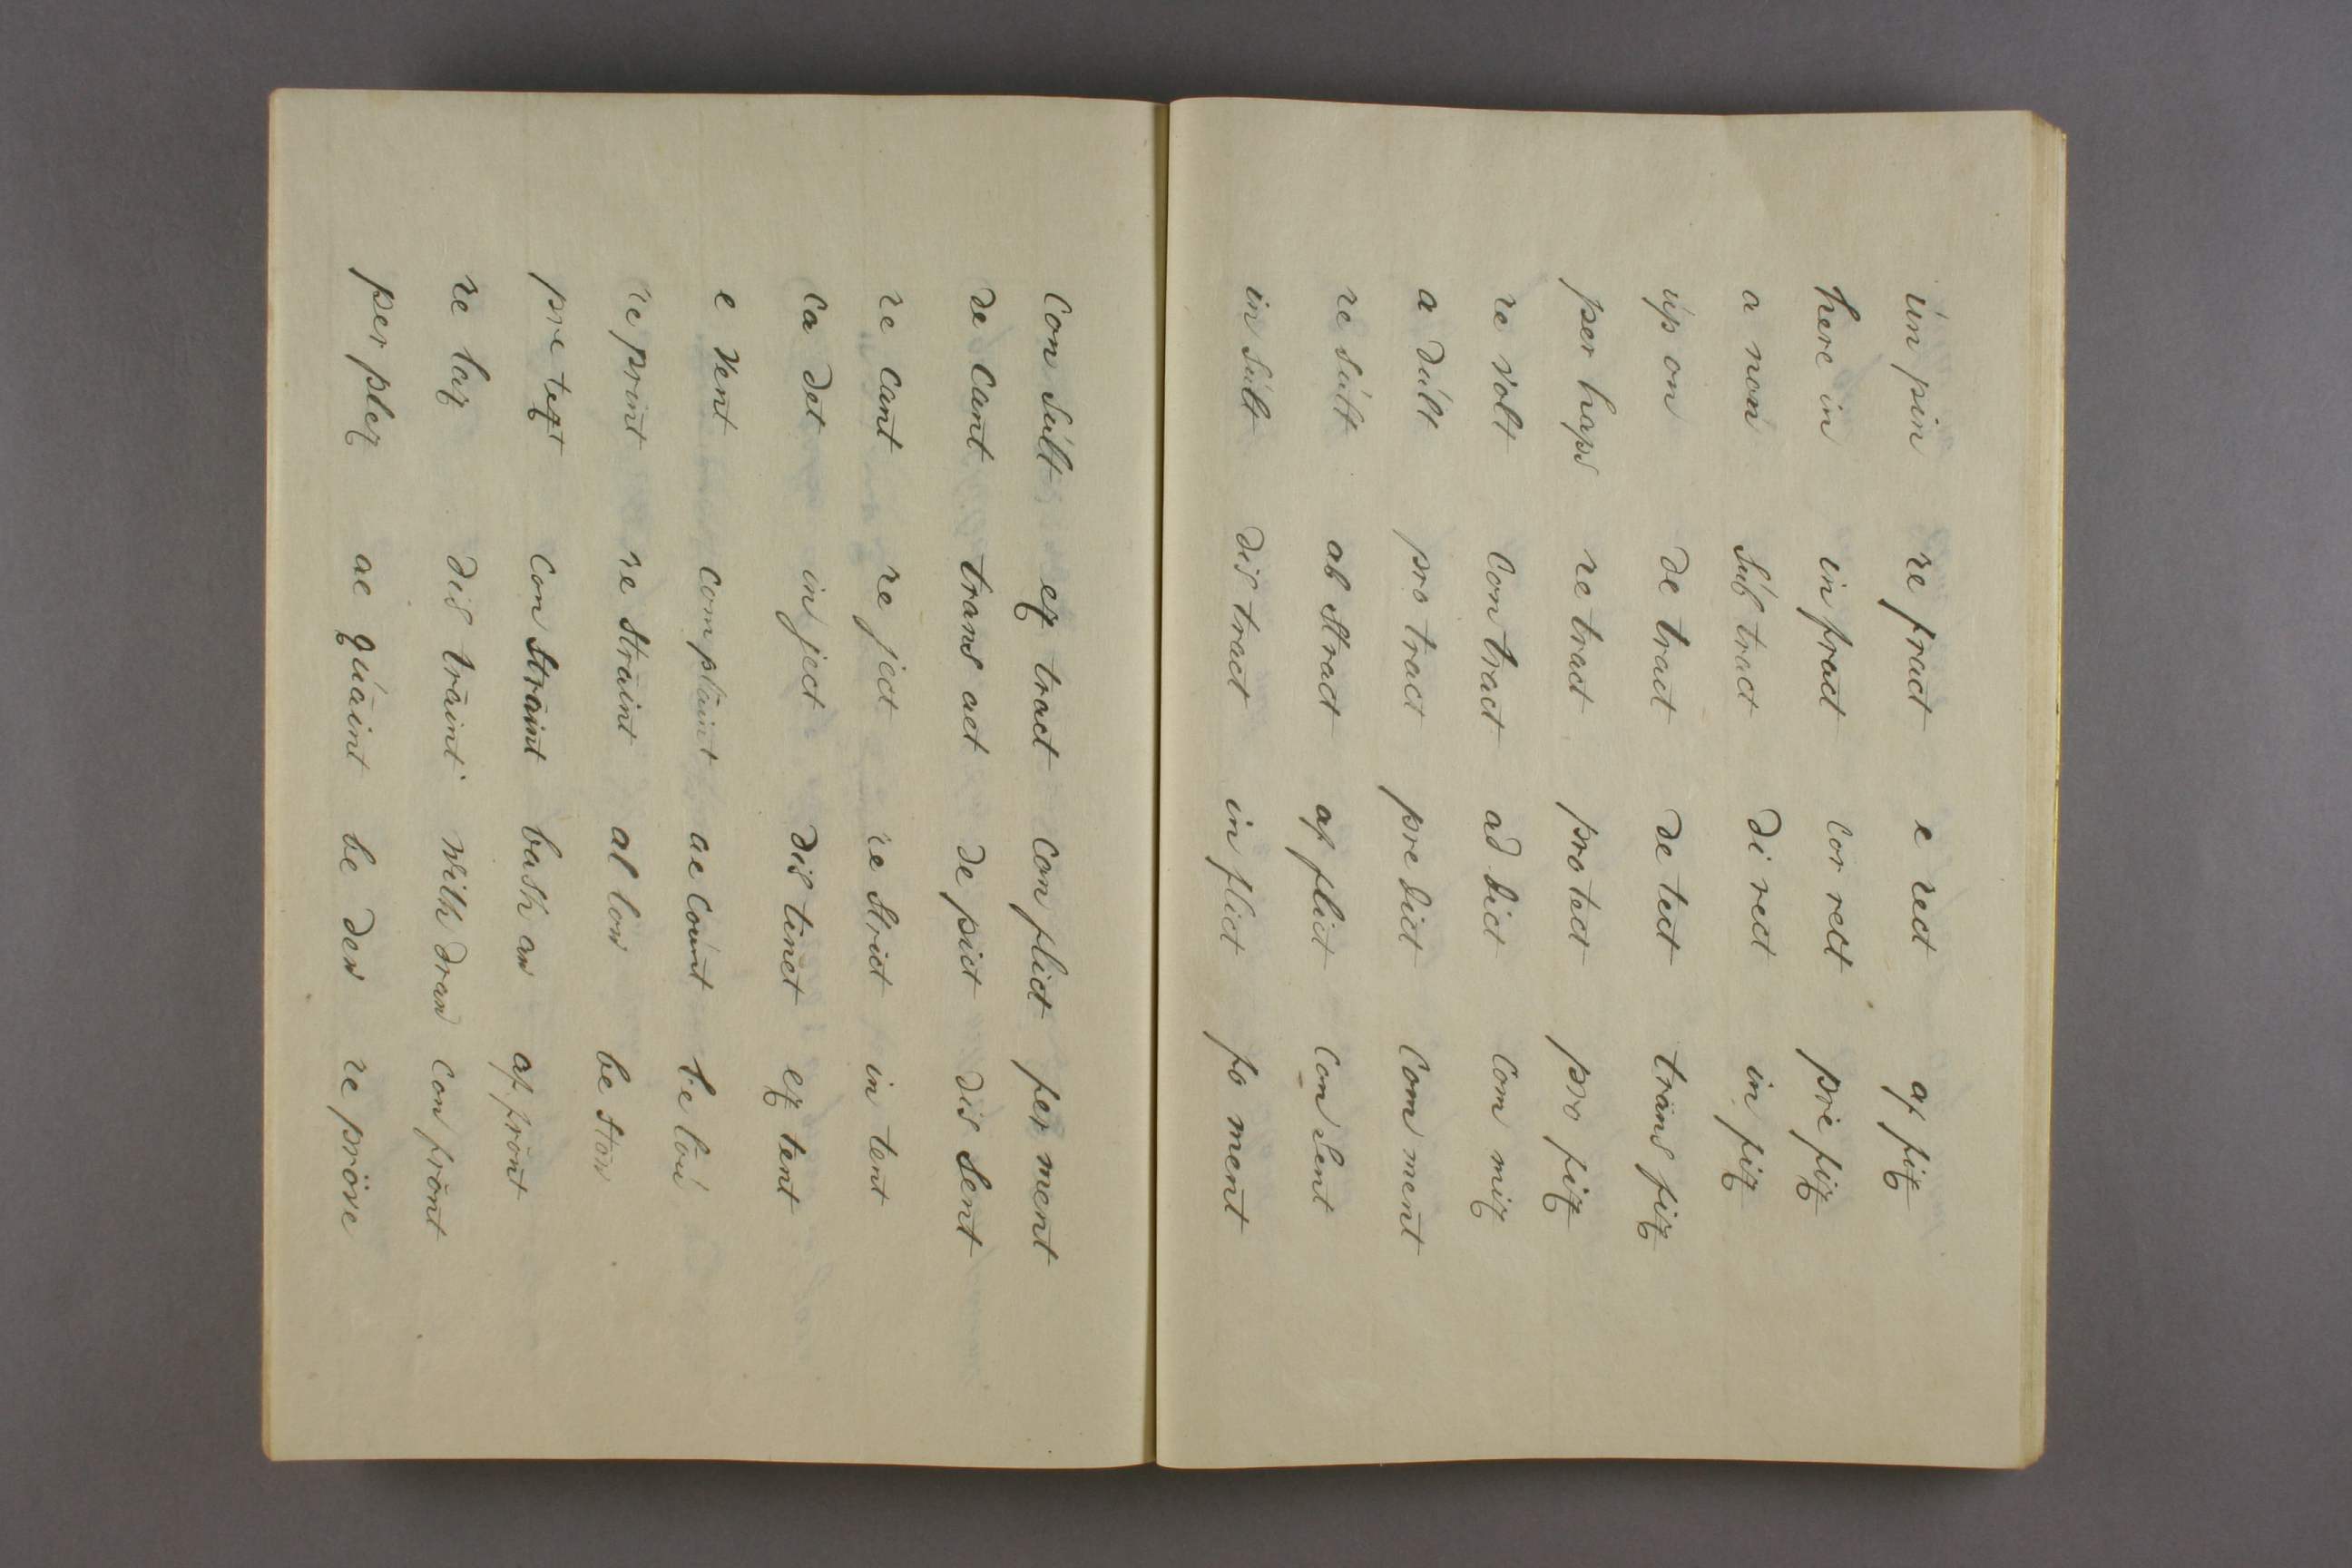 ún pin re fract e rect af fix
here in in fract cor rect pre fix
a non súb tract di rect in fix
úp on de tract de tect trans fix
per haps re tract pro tect pro fix
re volt con tract ad dict com mix
a dúlt pro tract pre dict com ment
re súlt ab stract af flict con sent
in súlt dis tract in flict fo ment
con súlt ex tract con flict fer ment
de cant trans act de pict dis sent
re cant re ject re strict in tent
ca det in ject dis tinct ex tent
e vent com plāint ac coúnt be loú
re print re strāint al low be stōw
pre text con strāint bash aw af frōnt
re lax dis trāint with draw con frōnt
per plex ac qúāint be dew re prōve